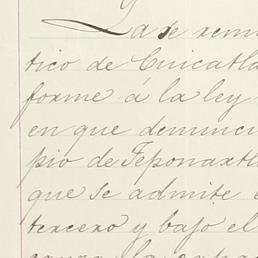 La se remi
tico de Cuicatla
forme á la ley
en que denunci
pio de Teponaxtl
que se admite e
tercero y bajo el